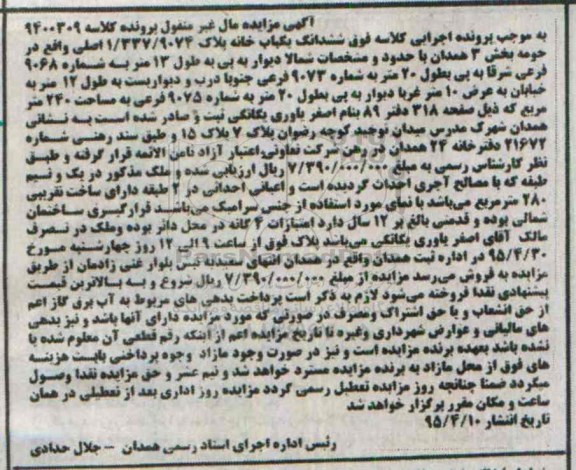 آگهی مزایده مال غیر منقول پرونده کلاسه ۹۴۰۰۳۰۹
به موجب پرونده اجرایی کلاسه فوق ششدانگ یکباب خانه پلاک ۱/۳۳۷/۹۰۷۴ اصلی واقع در
حومه بخش ۳ همدان با حدود و مشخصات شمالا دیوار به پی به طول ۱۳ متر به شماره ۹۰۶۸
فرعی شرقا به پی بطول ۲۰ متر به شماره ۹۰۷۳ فرعی جنوبا درب و دیواریست به طول ۱۲ متر به
خیابان به عرض ۱۰ متر غربا دیوار به پی بطول ۲۰ متر به شماره ۹۰۷۵ فرعی به مساحت ۲۴۰ متر
مربع که ذیل صفحه ۳۱۸ دفتر ۸۹ بنام اصغر یاوری یگانگی ثبت و صادر شده است به نشانی
همدان شهرک مدرس میدان توحید کوچه رضوان پلاک ۷ پلاک ۱۵ و طبق سند رهنی شماره
۲۱۶۷۲ دفترخانه ۲۴ همدان در رهن شرکت تعاونی اعتبار آزاد ثامن الائمه قرار گرفته و طبق
نظر کارشناس رسمی به مبلغ ۷/۳۹۰/۰۰۰/۰۰۰ ریال ارزیابی شده و ملک مذکور در یک و نیم
طبقه که با مصالح آجری احداث گردیده است و اعیانی احداثی در ۲ طبقه دارای ساخت تقریبی
۲۸۰ مترمربع می‌باشد با نمای مورد استفاده از جنس سرامیک می‌باشد قرارگیری ساختمان
شمالی بوده و قدمتی بالغ بر ۱۲ سال دارد امتیازات ۴ گانه در محل دائر بوده وملک در تصرف
مالک آقای اصغر یاوری یگانگی می‌باشد پلاک فوق از ساعت ۹ الی ۱۲ روز چهارشنبه مورخ
۹۵/۴/۳۰ در اداره ثبت همدان واقع در همدان انتهای نبش بلوار غنی زادمان از طریق
مزایده به فروش می‌رسد مزایده از مبلغ ۷/۳۹۰/۰۰۰/۰۰۰ ریال شروع و به بالاترین قیمت
پیشنهادی نقدا فروخته می‌شود لازم به ذکر است پرداخت بدهی های مربوط به آب برق گاز اعم
از حق انشعاب و یا حق اشتراک ومصرف در صورتی که مورد مزایده دارای آنها باشد و نیز بدهی
های مالیاتی و عوارض شهرداری وغیره تا تاریخ مزایده اعم از اینکه رقم قطعی آن معلوم شده یا
نشده باشد بعهده برنده مزایده است و نیز در صورت وجود مازاد وجوه پرداختی بابت هزینه
های فوق از محل مازاد به برنده مزایده مسترد خواهد شد و نیم عشر و حق مزایده نقدا وصول
میگردد ضمنا چنانچه روز مزایده تعطیل رسمی گردد مزایده روز اداری بعد از تعطیلی در همان
ساعت و مکان مقرر برگزار خواهد شد
تاریخ انتشار ۹۵/۴/۱۰
رئیس اداره اجرای اسناد رسمی همدان - جلال حدادی